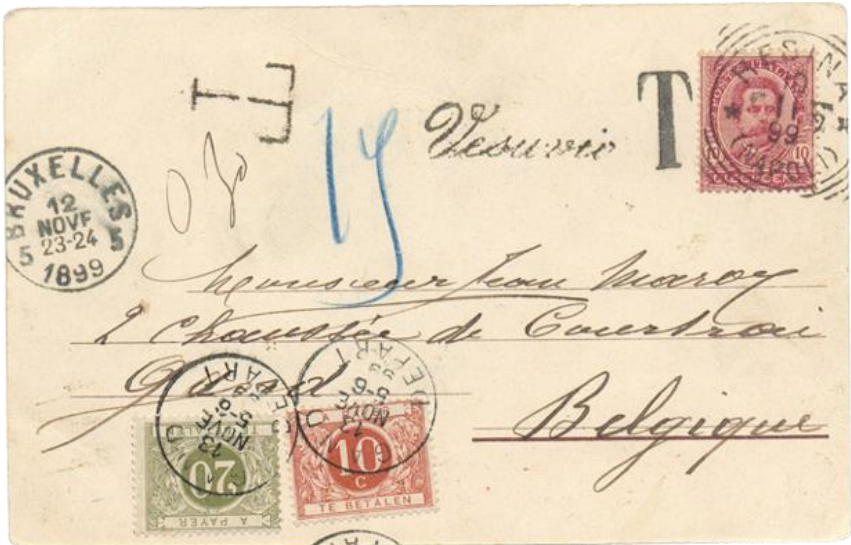 T
T
Vesuvio
T
RESINA
11
99
(NAPOLI)
10
0 30
15
BRUXELLES
12
NOVE
23-24
5 5
1899
Monsieur Jean Maroy
2 Chaussée de Courtrai
Gand
Belgique
DEPART
13
NOVE
5-6
DEPART
13
NOVE
5-6
20
A PAYER
10
C
TE BETALEN